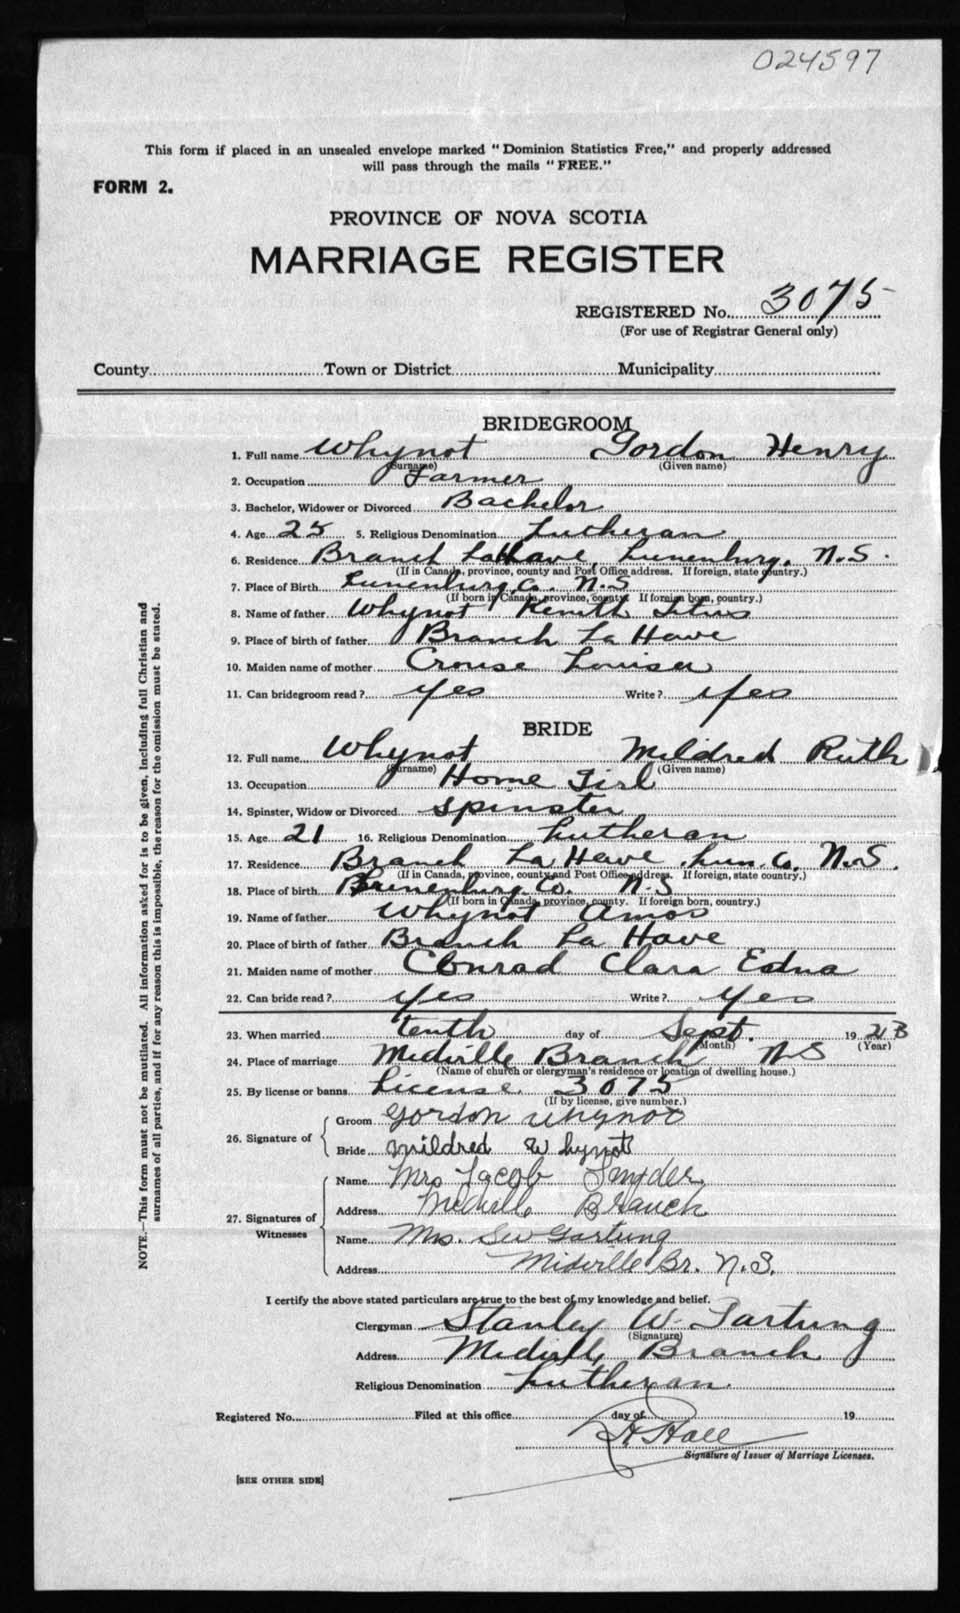 024597
This form if placed in an unsealed envelope marked "Dominion Statistics Free," and properly addressed
will pass through the mails "FREE."
FORM 2.
PROVINCE OF NOVA SCOTIA
MARRIAGE REGISTER
REGISTERED No. 3075
(For use of Registrar General only)
County Town or District Municipality
BRIDEGROOM
1. Full name Whynot Gordon Henry
(Surname) (Given name)
2. Occupation Farmer
3. Bachelor, Widower or Divorced Bachelor
4. Age 25 5. Religious Denomination Lutheran
6. Residence Branch LaHave, Lunenburg, N.S.
(If in Canada, province, county and Post Office address. If foreign, state country.)
7. Place of Birth Lunenburg Co. N.S
(If born in Canada, province, county. If foreign born, country.)
8. Name of father Whynot Kenith Titus
9. Place of birth of father Branch La Have
10. Maiden name of mother Crouse Louisa
11. Can bridegroom read? yes Write? yes
BRIDE
12. Full name Whynot Mildred Ruth
(Surname) (Given name)
13. Occupation Home Girl
14. Spinster, Widow or Divorced spinster
15. Age 21 16. Religious Denomination Lutheran
17. Residence Branch La Have Lun. Co. N.S.
(If in Canada, province, county and Post Office address. If foreign, state country.)
18. Place of birth Lunenburg Co. N.S
(If born in Canada, province, county. If foreign born, country.)
19. Name of father Whynot Amos
20. Place of birth of father Branch La Have
21. Maiden name of mother Conrad Clara Edna
22. Can bride read? yes Write? yes
23. When married tenth day of Sept. 19
(Month) (Year)
24. Place of marriage Midville Branch N S
(Name of church or clergyman's residence or location of dwelling house.)
25. By license or banns License 3075
(If by license, give number.)
26. Signature of Groom Gordon Whynot
Bride Mildred Whynot
27. Signatures of Witnesses Name Mrs Jacob Snyder
Address Midville Branch
Name Mrs. S W Gartung
Address Midville Br. N.S.
I certify the above stated particulars are true to the best of my knowledge and belief.
Clergyman Stanley W. Gartung
(Signature)
Address Midville Branch
Religious Denomination Lutheran
Registered No. Filed at this office day of 19
Hall
Signature of Issuer of Marriage Licenses.
[SEE OTHER SIDE]
NOTE.—This form must not be mutilated. All information asked for is to be given, including full Christian and
surnames of all parties, and if for any reason this is impossible, the reason for the omission must be stated.